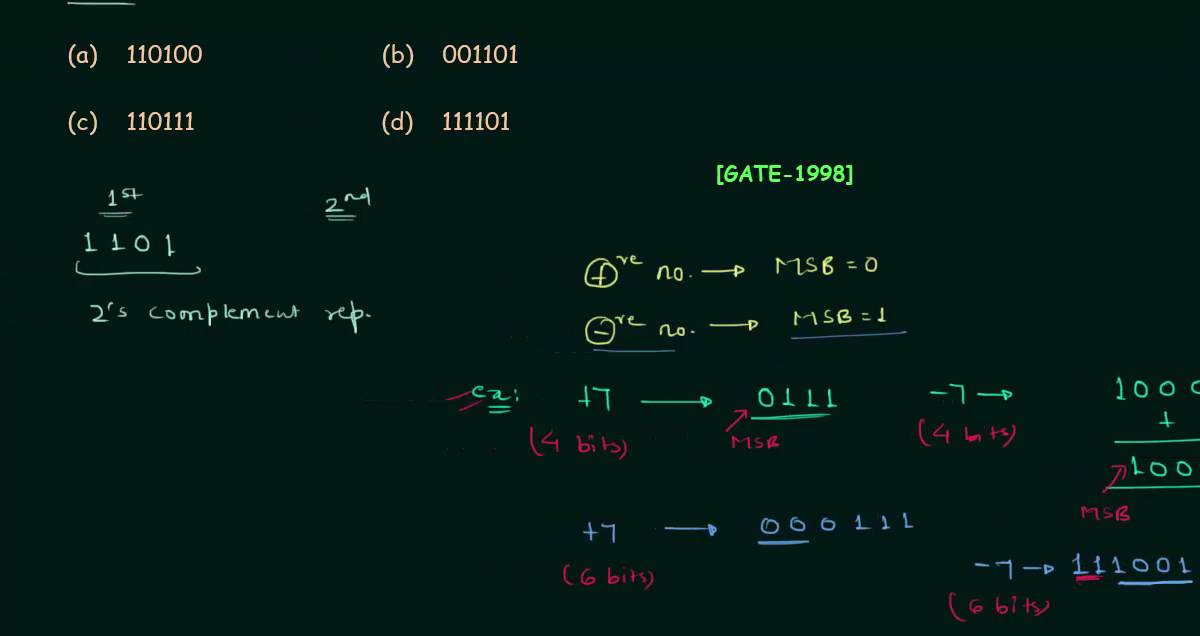 (a) 110100 (b) 001101
(c) 110111 (d) 111101
[GATE-1998]
1st 2nd
1 1 0 1
2's complement rep.
+ve no. → MSB = 0
-ve no. → MSB = 1
ex: +7 → 0111 -7 → 100
(4 bits) MSB (4 bits) +
100
MSB
+7 → 000111
(6 bits)
-7 → 111001
(6 bits)